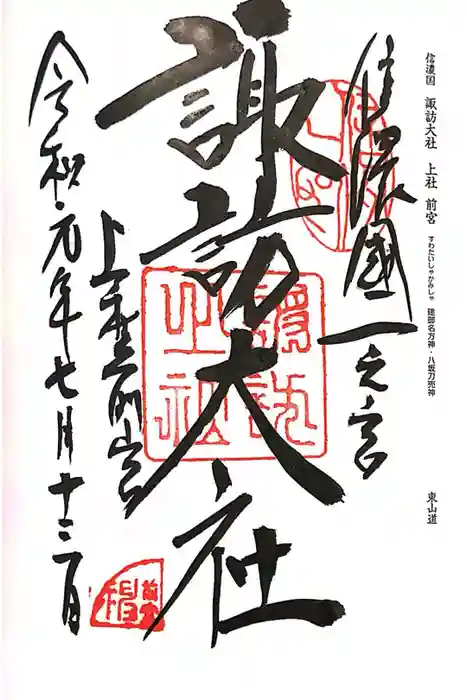 信濃国 諏訪大社 上社 前宮 すわたいしゃかみしゃ 建御名方神・八坂刀売神 東山道
信濃國一之宮
諏訪大社
上社前宮
令和元年七月十三日